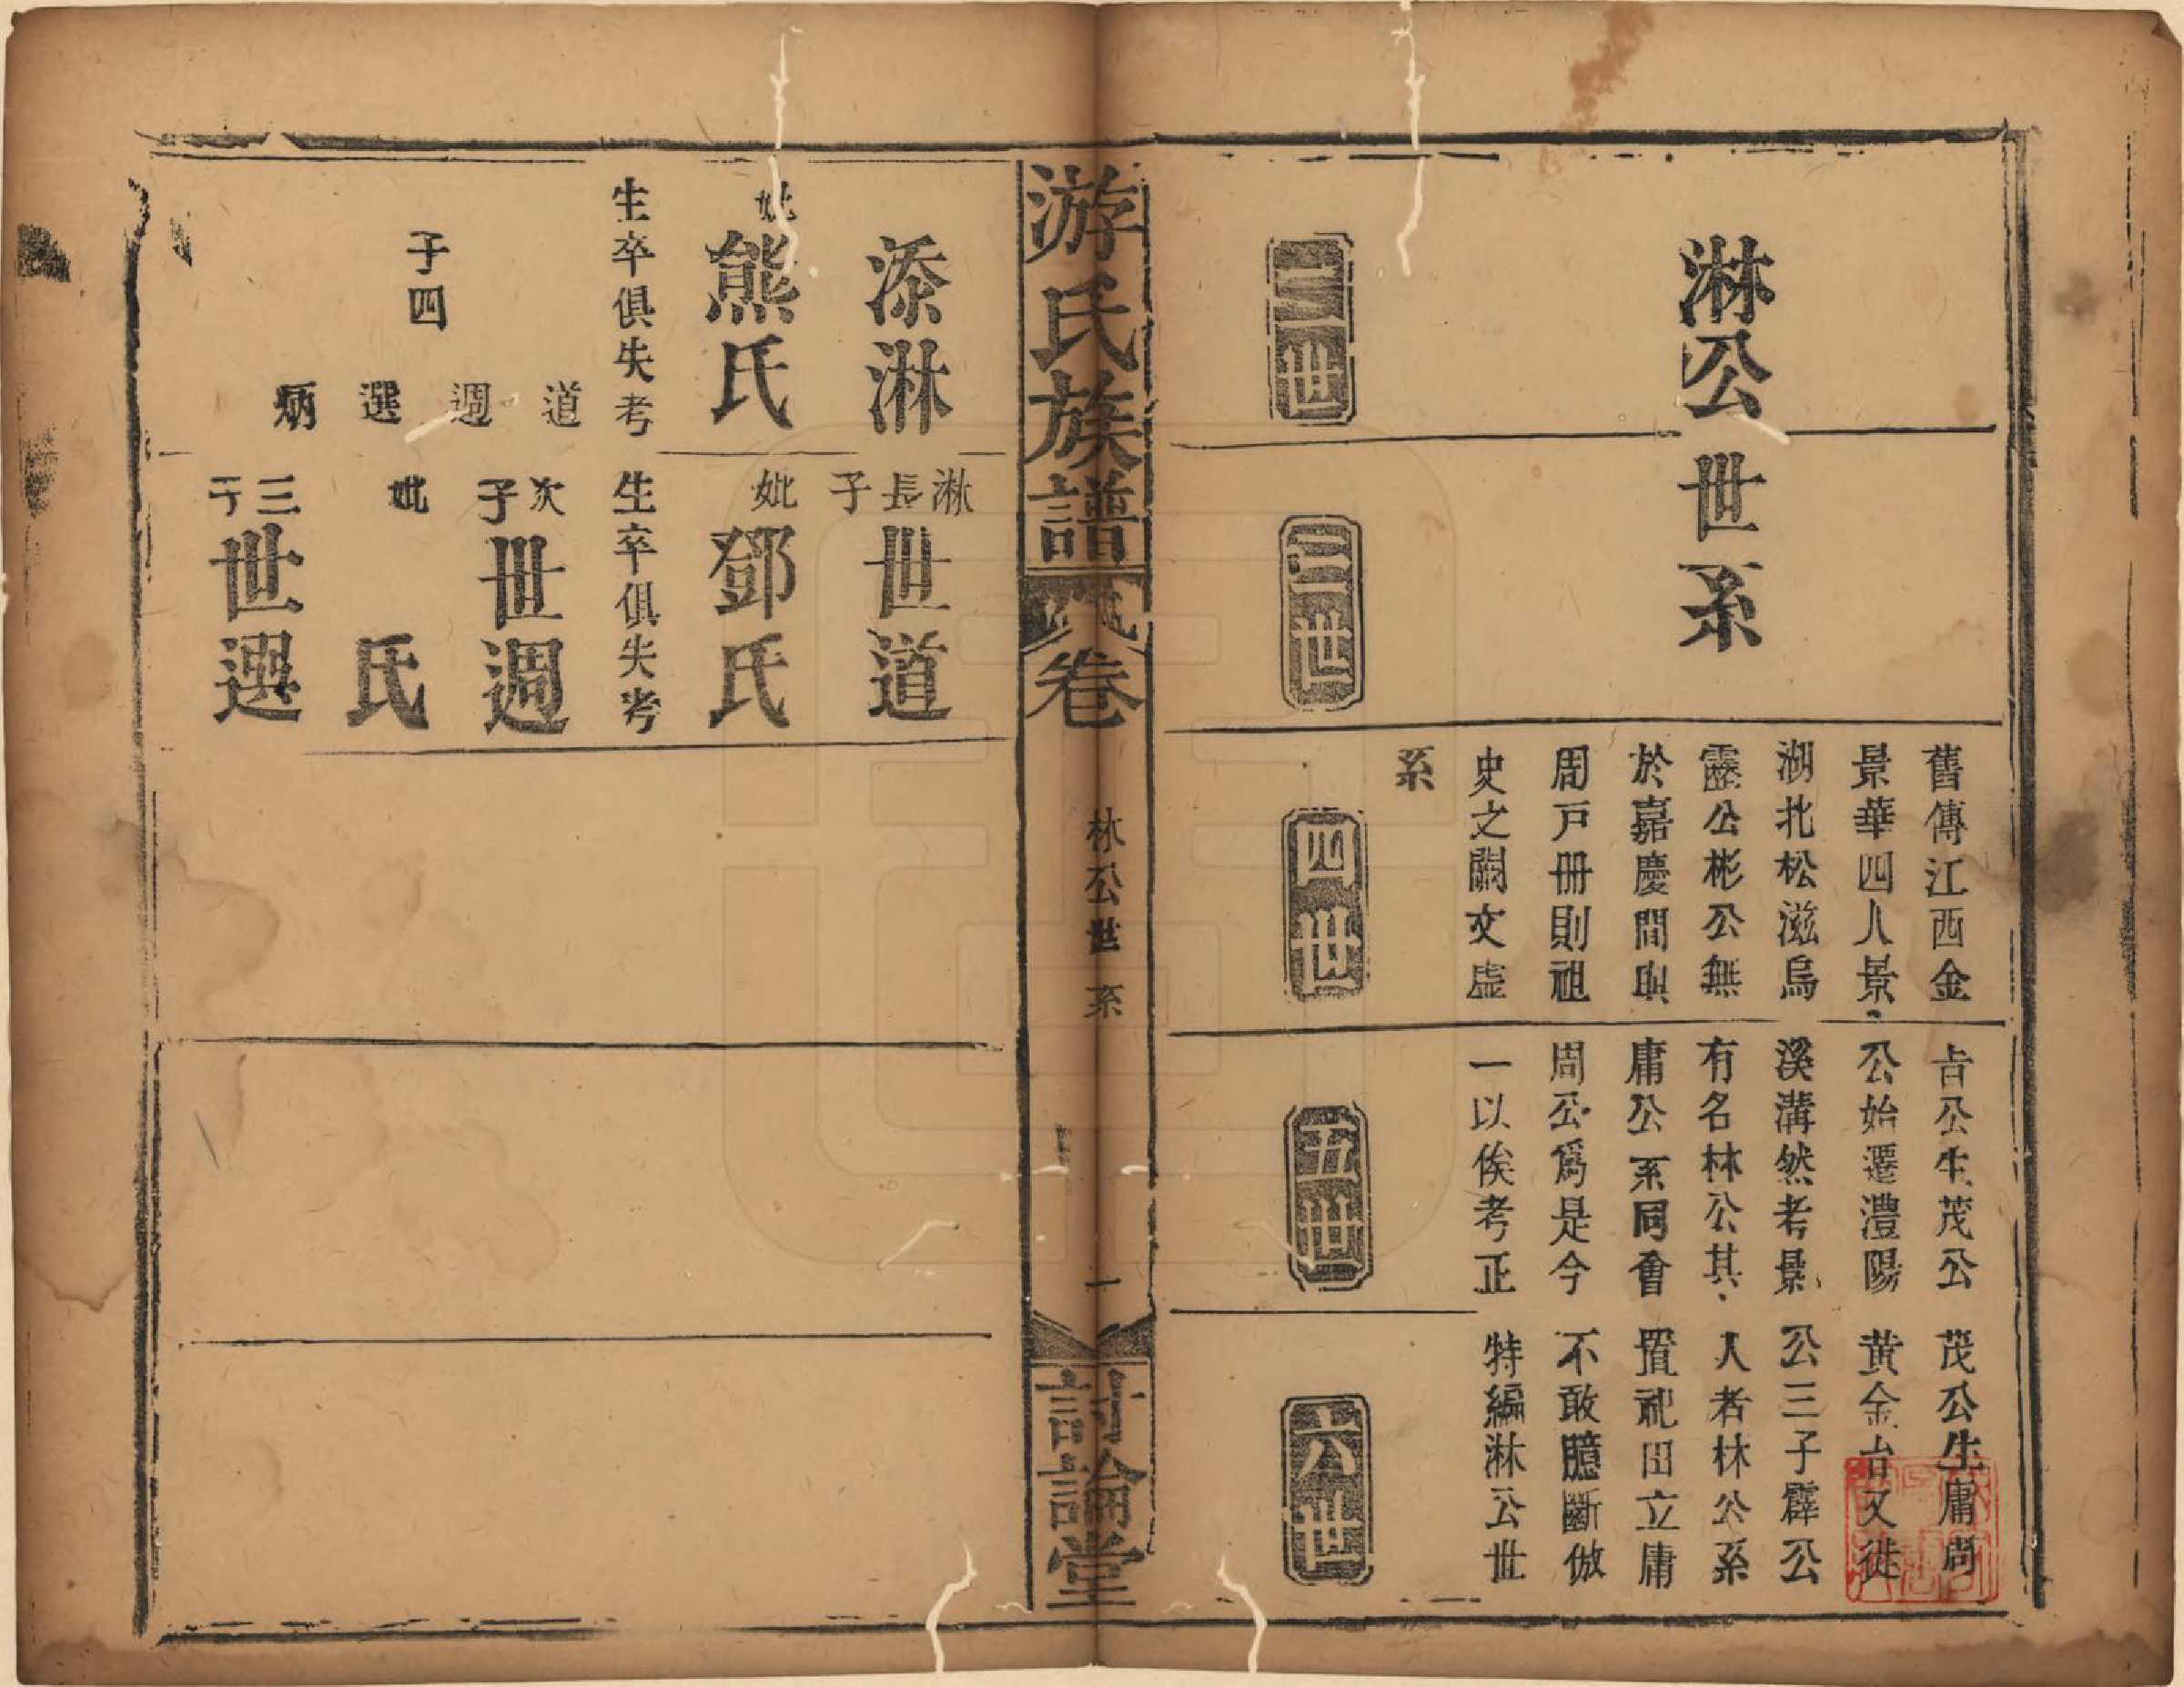 淋公世系
舊傳江西金吉公生茂公茂公生庸尚
景華四人景公始遷澧陽黃金台又徙
湖北松滋烏溪溝然考景公三子霹公
靂公彬公無有名林公其人者林公系
於嘉慶間與庸公系同會置祀田立庸
周戶冊則祖周公爲是今不敢臆斷倣
史之闕文虛一以俟考正特編淋公世
系
二世
三世
四世
五世
六世
游氏族譜
卷
林公世系
一
討論堂
添淋
妣熊氏
生卒俱失考
子四
道
週
選
炳
淋長子世道
妣鄧氏
生卒俱失考
次子世週
妣 氏
三子世選